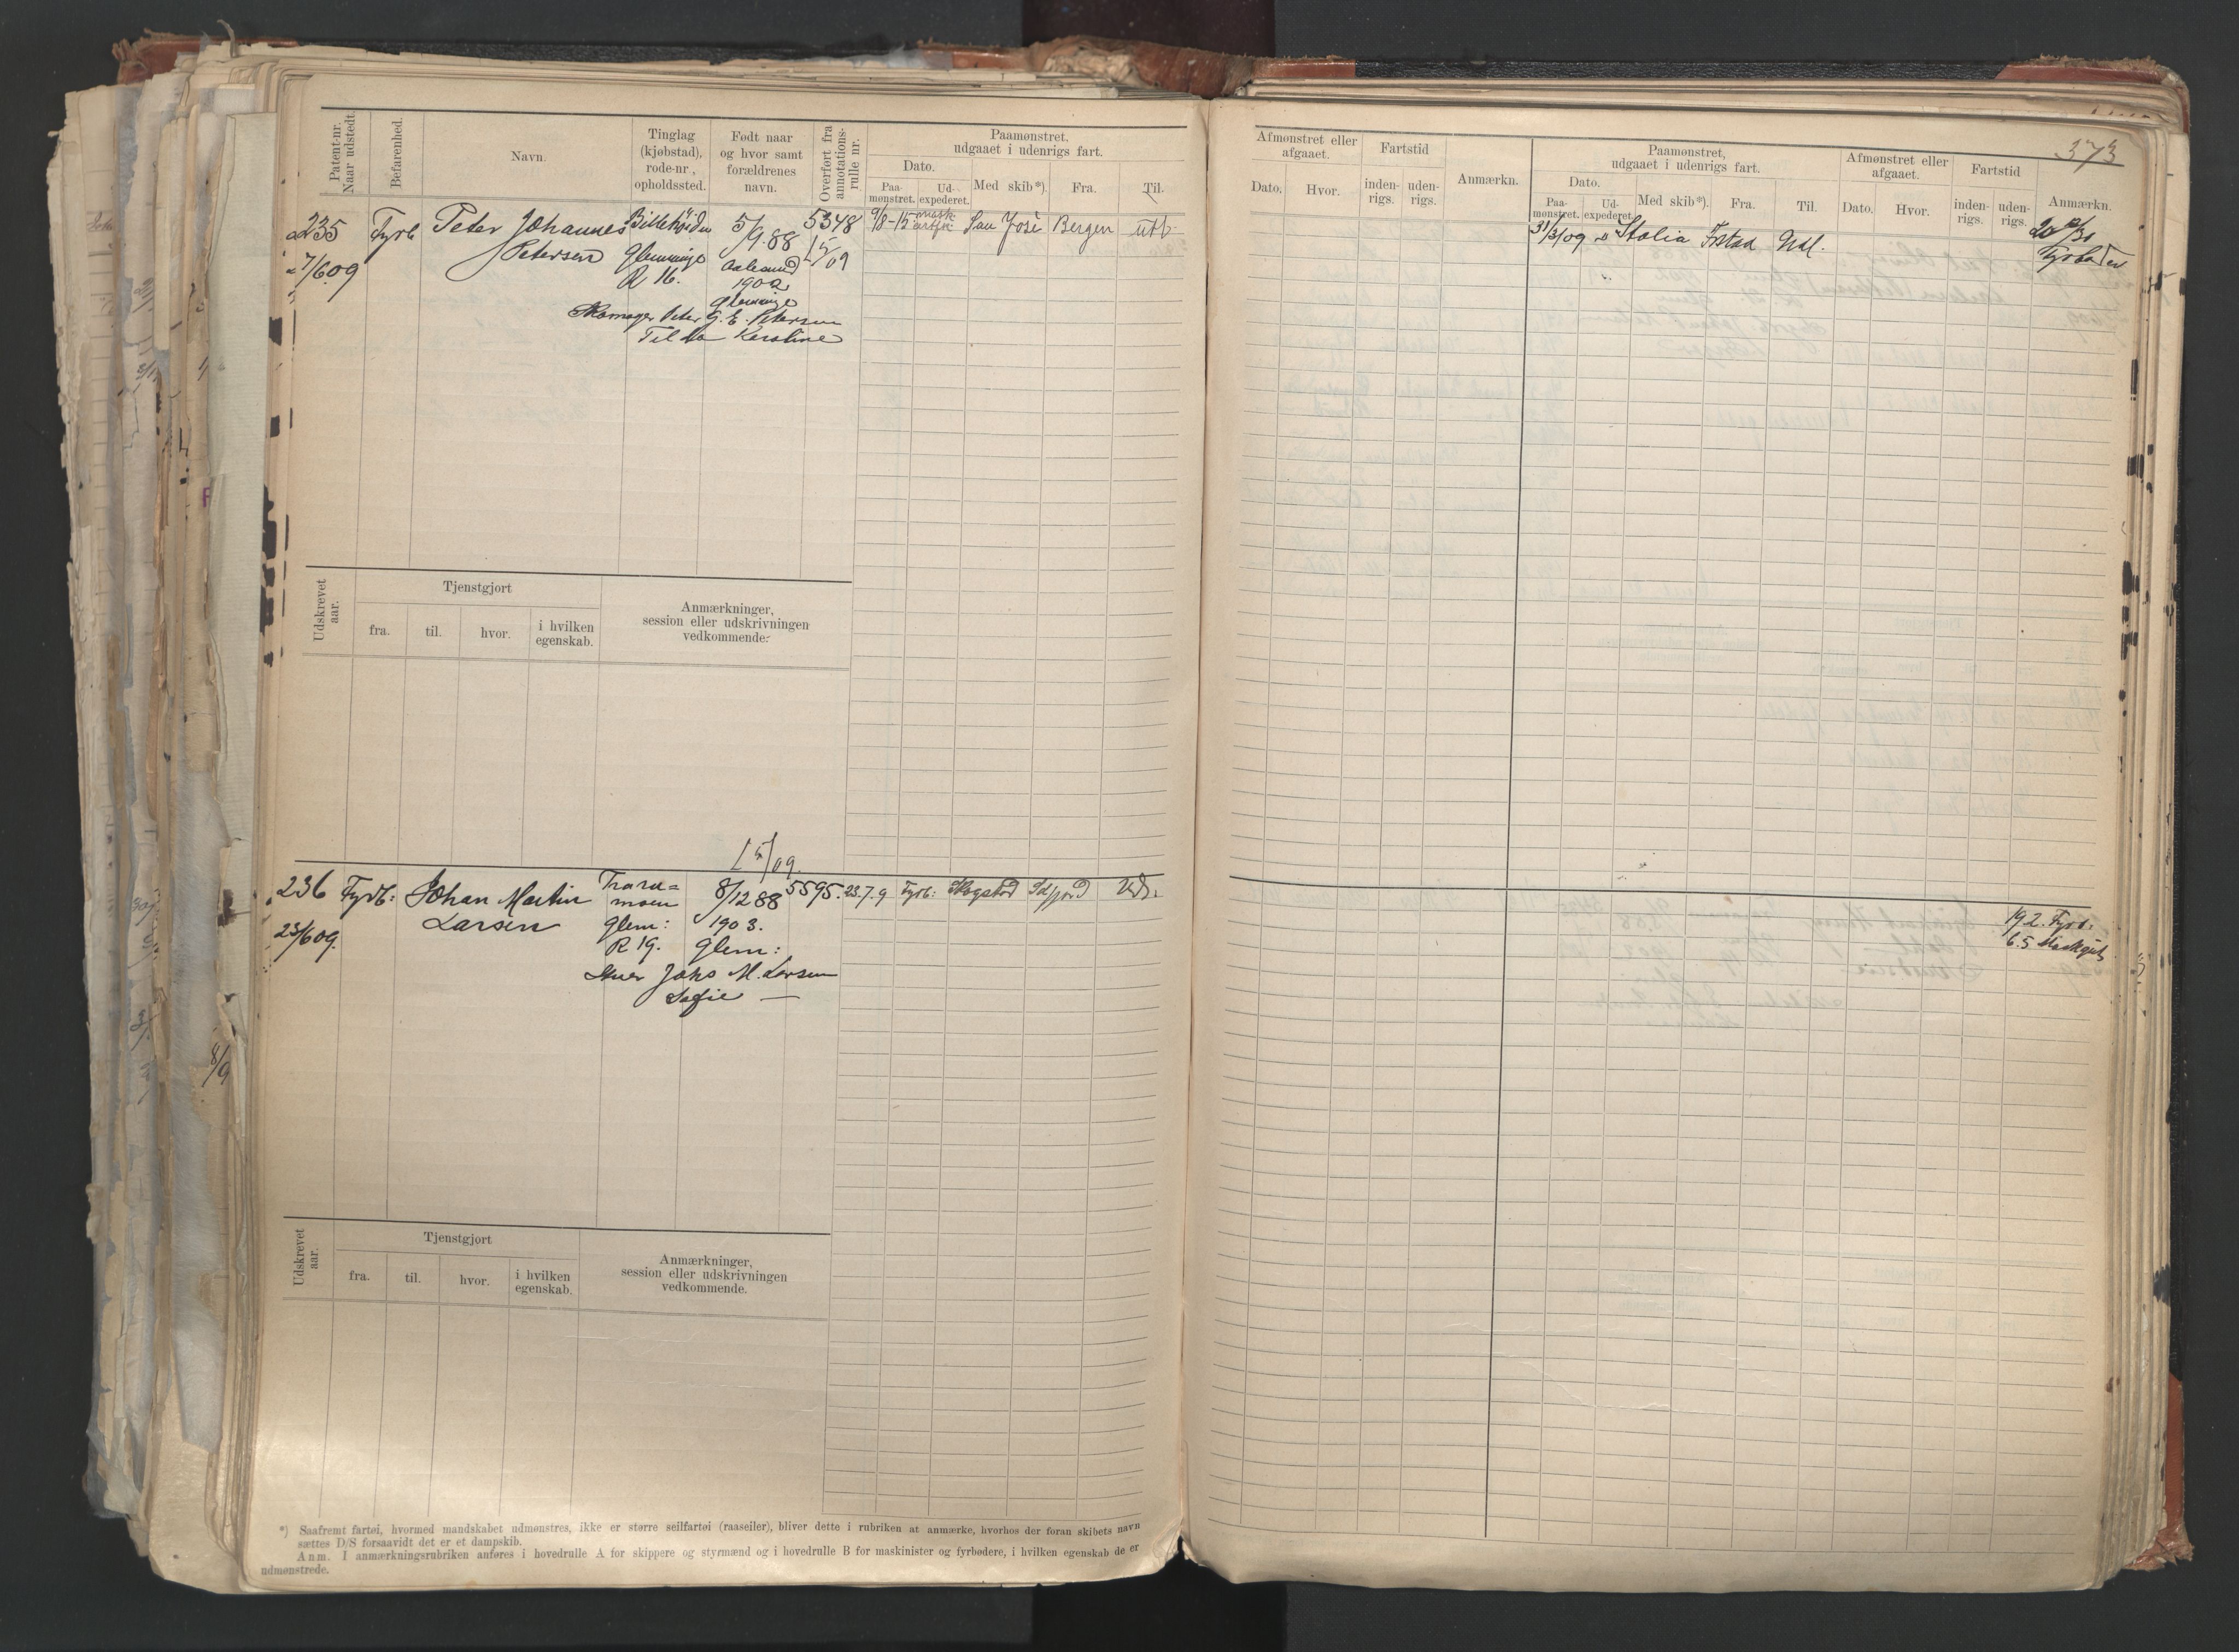 373
Patent-nr.
Naar udstedt.
Befarenhed.
Navn.
Tinglag
(kjøbstad),
rode-nr.,
opholdssted.
Født naar
og hvor samt
forældrenes
navn.
Overført fra
annotations-
rulle nr.
Paamønstret,
udgaaet i udenrigs fart.
Dato.
Paa-
mønstret.
Ud-
expederet.
Med skib*).
Fra.
Til.
235
7/6 09
Fyrb
Peter Johannes
Petersen
Glemminge
R 16.
5/9.88
Aalesund
1902
Glemminge
Skomager Peter G. E. Petersen
Tilda Karoline
5348
15/09
9/8-15
San José
Bergen
utl
Udskrevet
aar.
Tjenstgjort
fra.
til.
hvor.
i hvilken
egenskab.
Anmærkninger,
session eller udskrivningen
vedkommende.
236
23/6 09.
Fyrb:
Johan Martin
Larsen
Trara=
moen
Glem:
R 19.
15/09.
8/12 88
1903.
Glem:
Johs M. Larsen
Sofie —
5595.
23.7.9
Fyrb:
Skogstad
Udl.
Udskrevet
aar.
Tjenstgjort
fra.
til.
hvor.
i hvilken
egenskab.
Anmærkninger,
session eller udskrivningen
vedkommende.
*) Saafremt fartøi, hvormed mandskabet udmønstres, ikke er større seilfartøi (raaseiler), bliver dette i rubriken at anmærke, hvorhos der foran skibets navn
sættes D/S forsaavidt det er et dampskib.
Anm. I anmærkningsrubriken anføres i hovedrulle A for skippere og styrmænd og i hovedrulle B for maskinister og fyrbødere, i hvilken egenskab de er
udmønstrede.
Afmønstret eller
afgaaet.
Dato.
Hvor.
Fartstid
inden-
rigs.
uden-
rigs.
Anmærkn.
Paamønstret,
udgaaet i udenrigs fart.
Dato.
Paa-
mønstret.
Ud-
expederet.
Med skib*).
Fra.
Til.
Afmønstret eller
afgaaet.
Dato.
Hvor.
Fartstid
inden-
rigs.
uden-
rigs.
Anmærkn.
31/3/09
Italia
Frstad
Udl.
19.2. Fyrb.
6.5